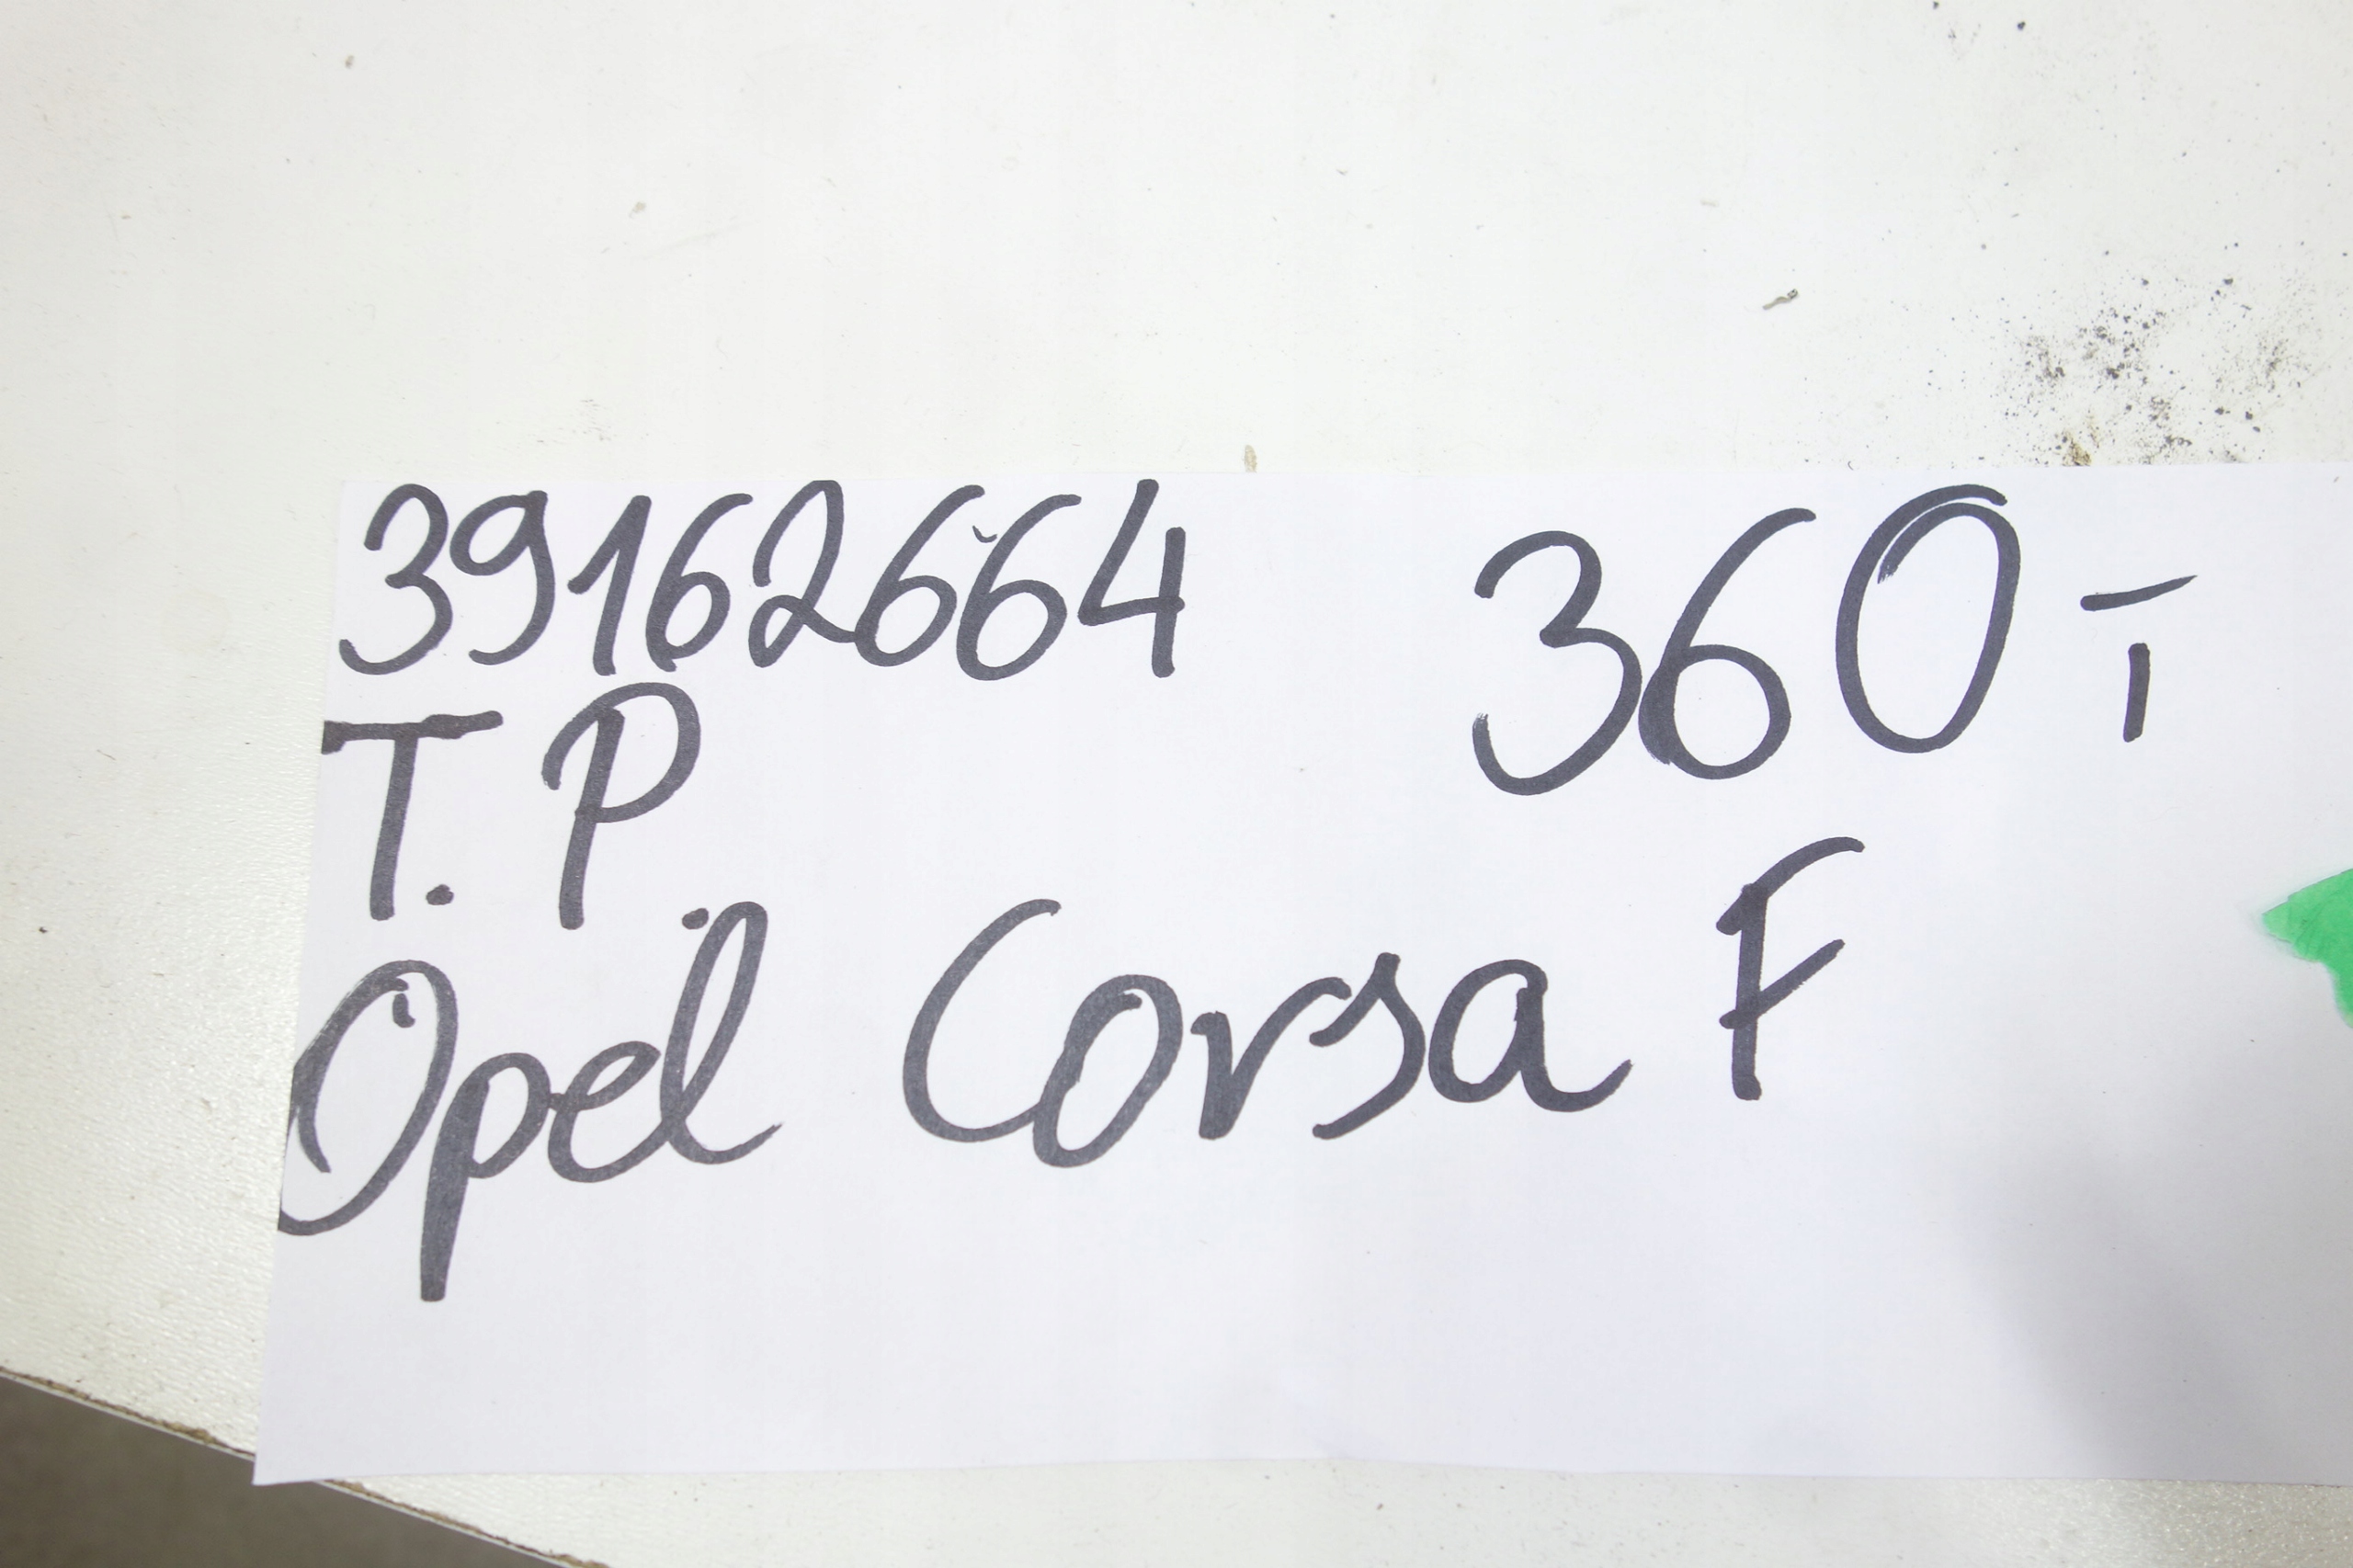 39162664 360,-
T. P
Opel Corsa F